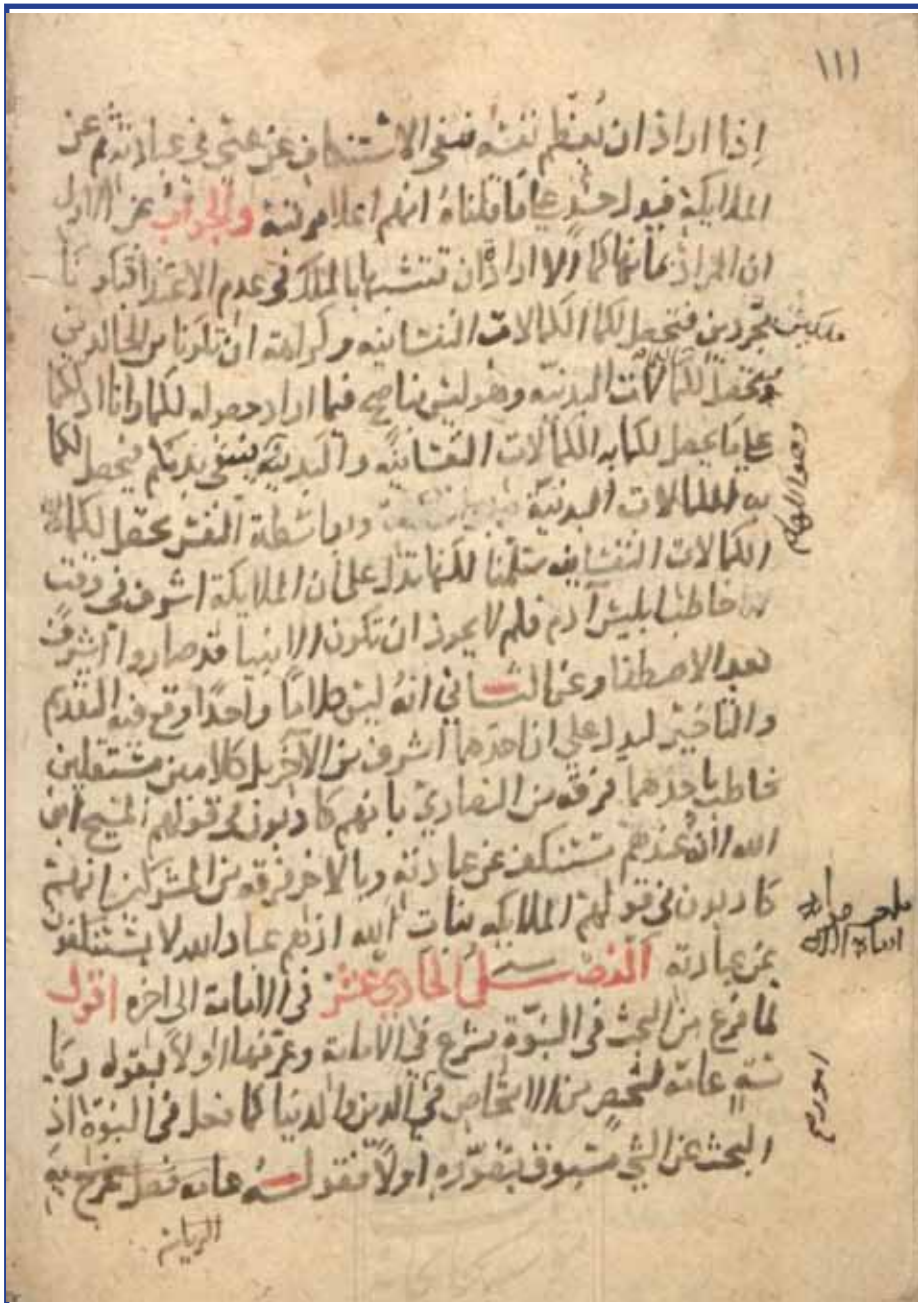 ١١١
إذا اراد ان يعظم نفسه بنفى الاستنكاف عن عيسى فى عبادته ثم عن
الملايكة فيدل حينئذ على ما قلناه انهم اعلا مرتبة والجواب عن الاول
ان المراد ما نهاكما الا ارادة ان تتشبها بالملك فى عدم الاغتذا فتكونا
ملكين مجردين فتحصل لكما الكمالات النفسانيه وكراهة ان تكونا من الخالدين
فتحصل لكما الكمالات البدنيه وهو ليس بناصح فيما اراد حصوله لكما وانا ادلكما
على ما يحصل لكما به الكمالات النفسانية والبدنية بنفى بدنكم فيحصل لكما
به الكمالات البدنية وبواسطة النفس يحصل لكما
الكمالات النفسانيه سلمنا لكنها تدل على ان الملايكة اشرف فى وقت
خاطب ابليس آدم فلم لا يجوز ان تكون الانبيا قد صاروا اشرف
بعد الاصطفا وعن الثانى انه ليس كلاما واحدا وقع فيه التقديم
والتاخير ليدل على ان احدهما اشرف من الآخر بل كلامين مستقلين
خاطب باحدهما فرقه من النصارى بانهم كاذبون فى قولهم المسيح ابن
الله لانه عندهم يستنكف عن عبادته وبالاخر فرقه من المشركين انهم
كاذبون فى قولهم الملايكه بنات الله اذ هم عباد الله لا يستنكفون
عن عبادته الفصل الحادي عشر فى الامامة الى اخره اقول
لما فرغ من البحث فى النبوة شرع فى الامامة وعرفها اولا بقوله ريا
سة عامة لشخص من الاشخاص فى الدين والدنيا كما فعل فى النبوة اذ
البحث عن الشى مسبوق بتصوره اولا فقوله رياسة عامه فصل يخرج به
الرياسة